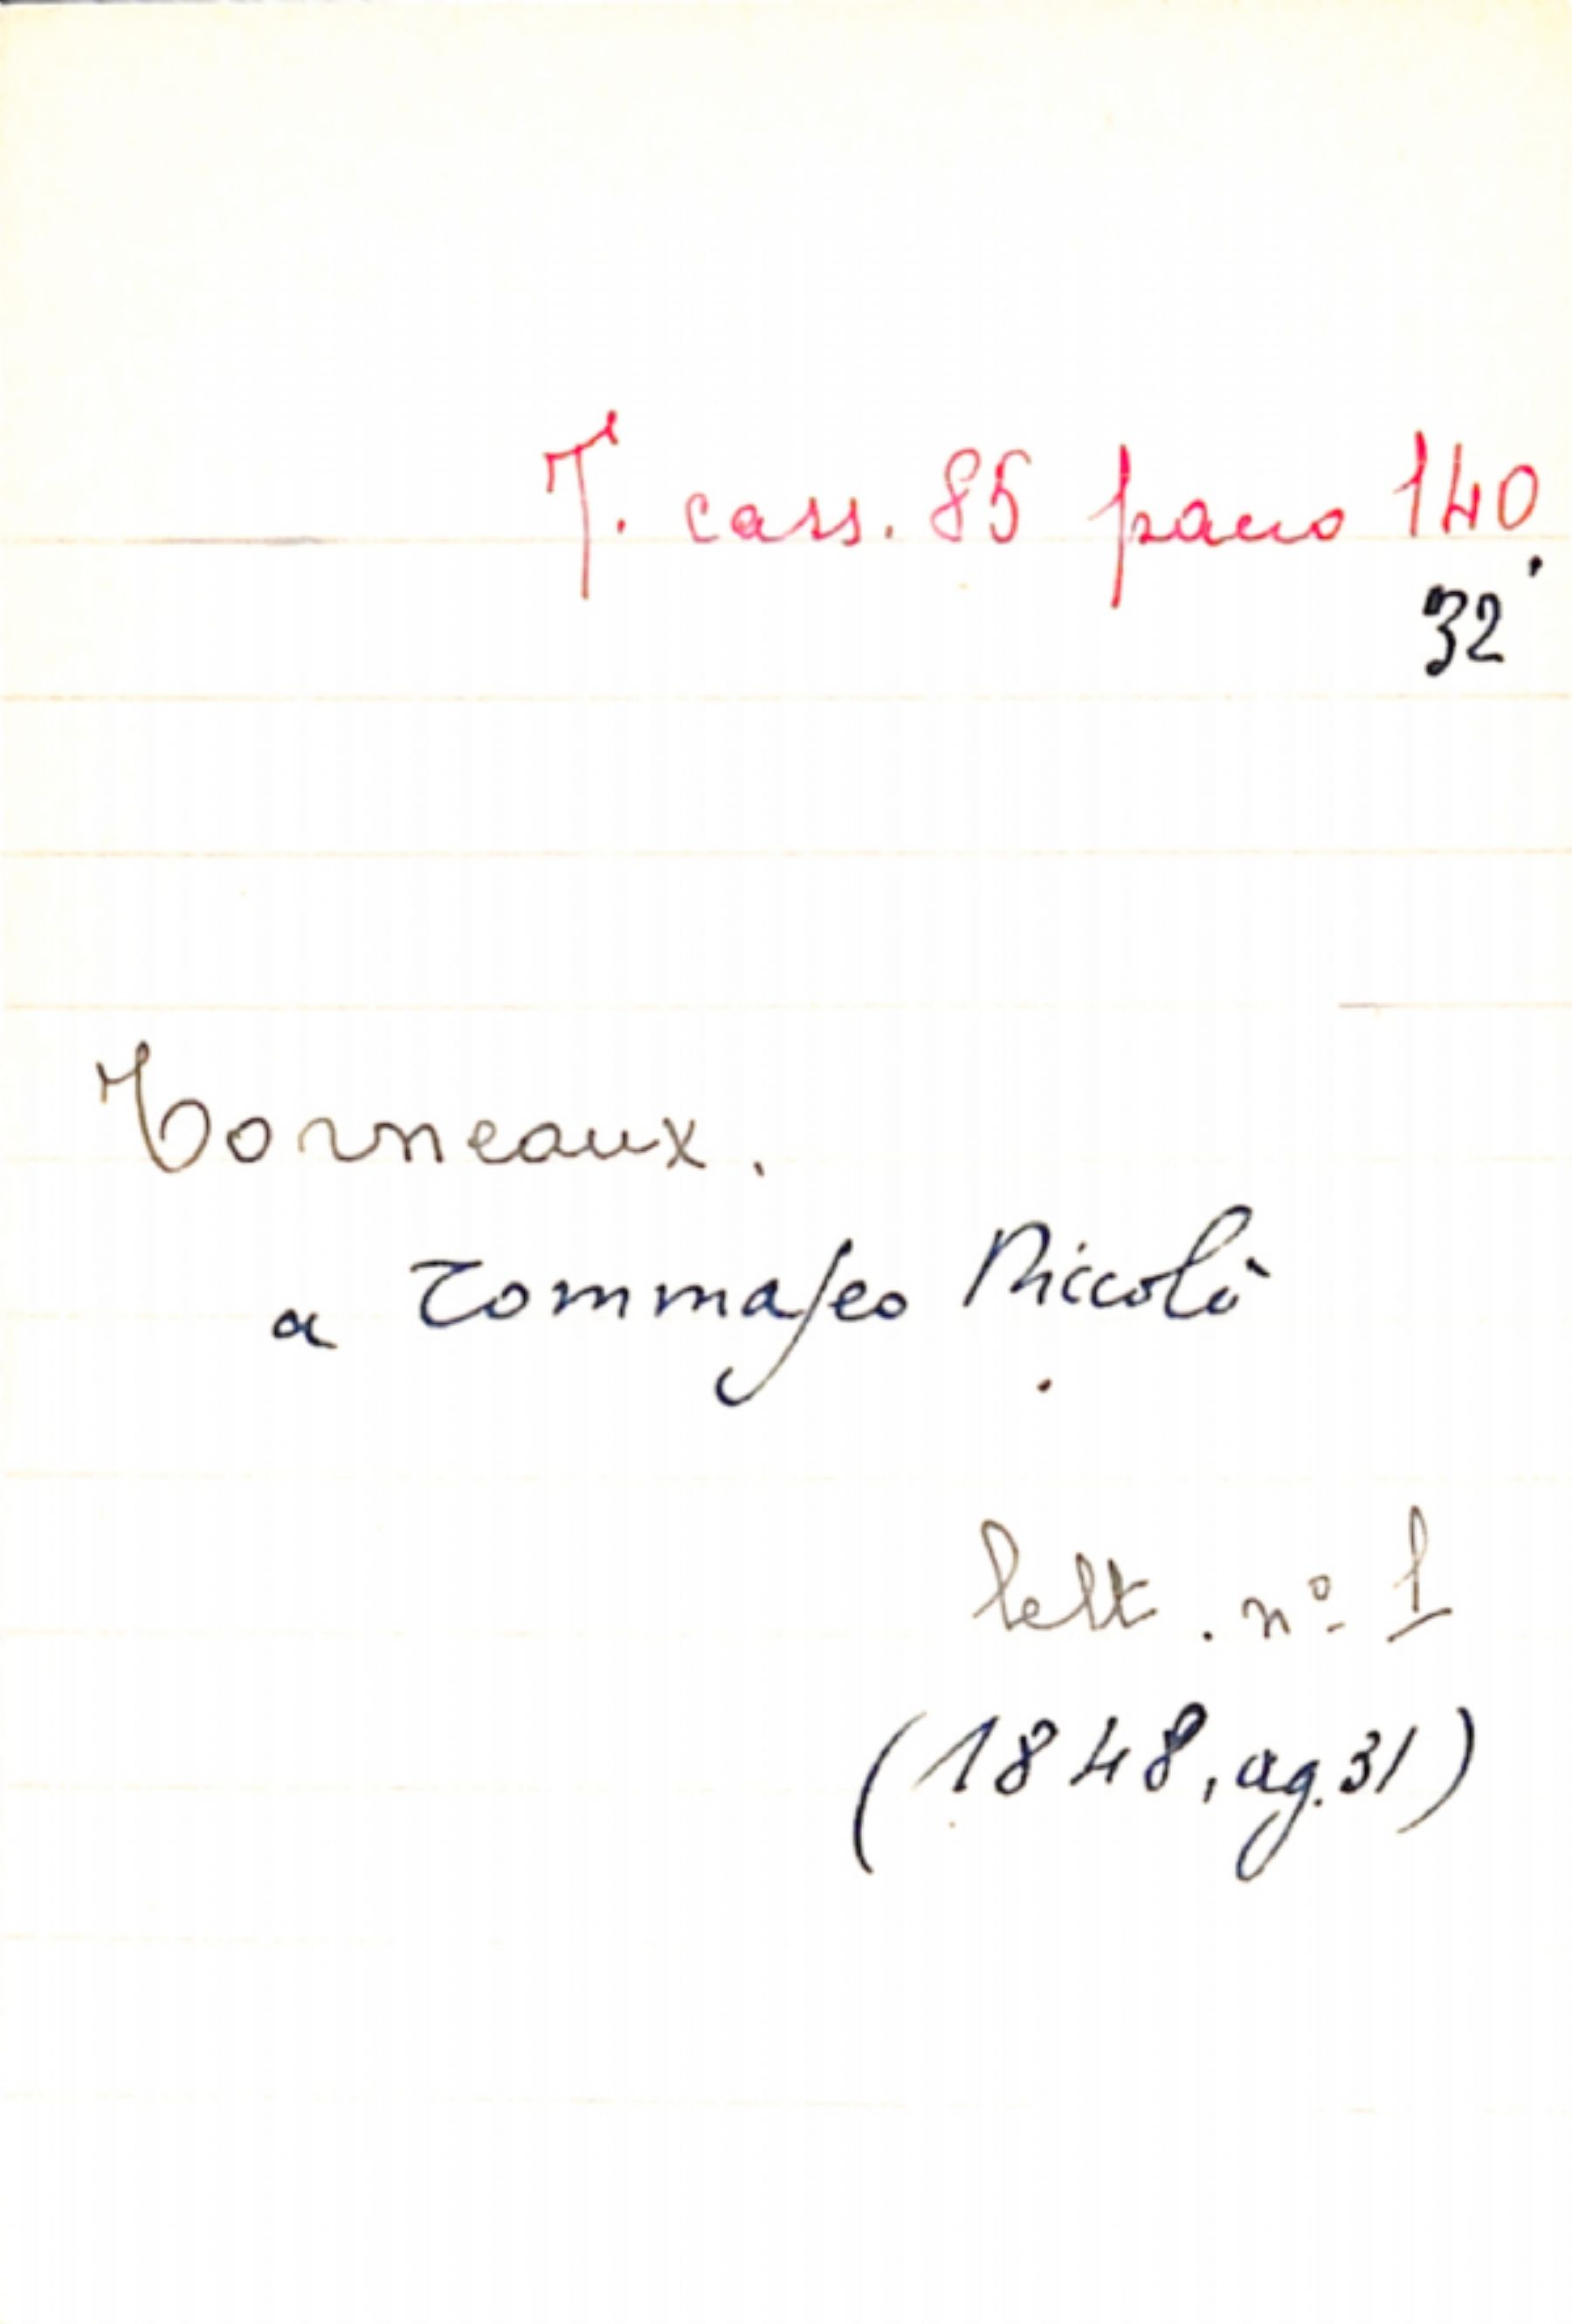 T. cass. 85 panno 140.
32
Torneaux.
a Tommaseo Niccolò
lett. nº 1
(1848, ag. 31)